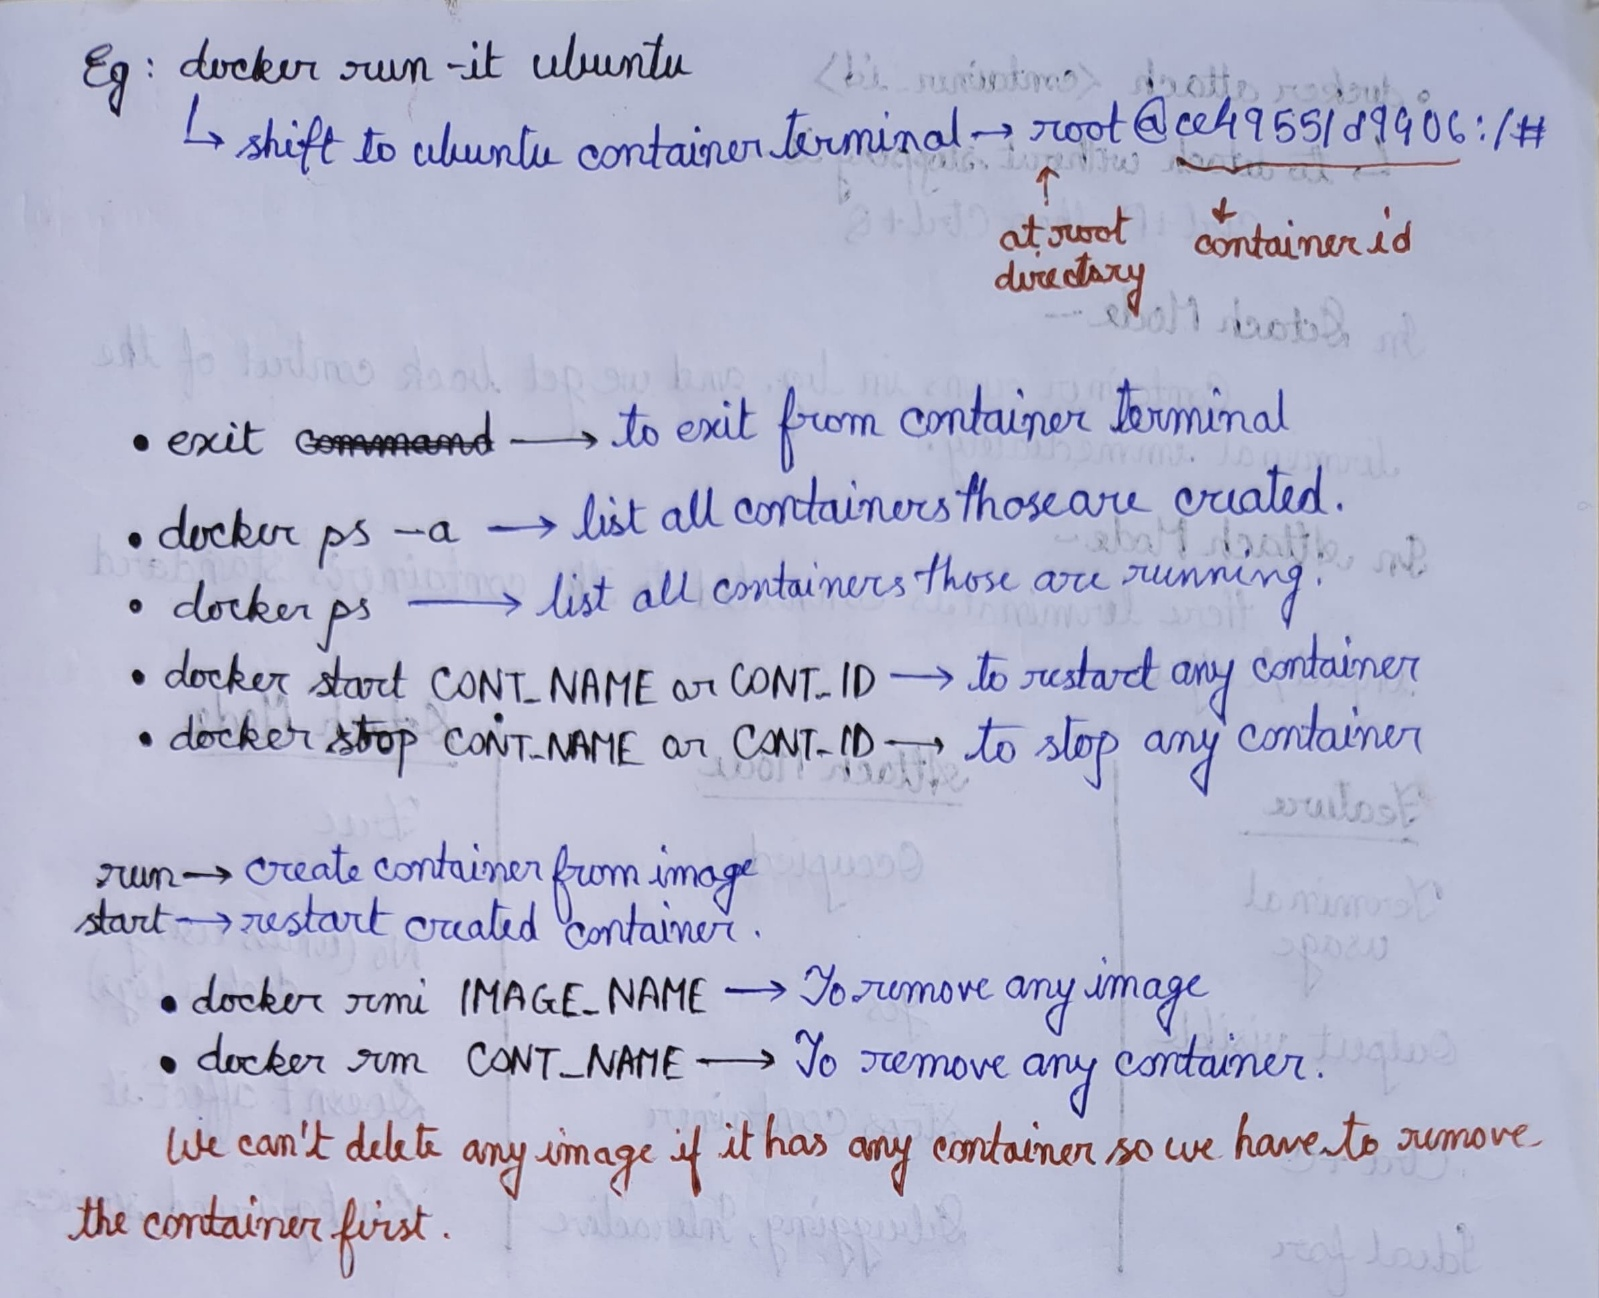 Eg : docker run -it ubuntu
↳ shift to ubuntu container terminal → root@ce49551d9906:/#
↑ at root directory
↓ container id
• exit → to exit from container terminal
• docker ps -a → list all containers those are created.
• docker ps → list all containers those are running.
• docker start CONT_NAME or CONT_ID → to restart any container
• docker stop CONT_NAME or CONT_ID → to stop any container
run → create container from image
start → restart created container.
• docker rmi IMAGE_NAME → To remove any image
• docker rm CONT_NAME → To remove any container.
We can't delete any image if it has any container so we have to remove
the container first.